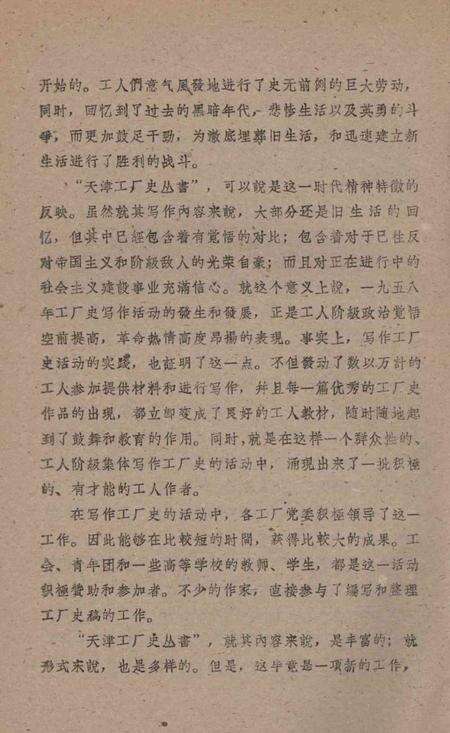 开始的。工人們意气風發地进行了史无前例的巨大劳动，
同时，回忆到了过去的黑暗年代，悲惨生活以及英勇的斗
爭，而更加鼓足干勁，为澈底埋葬旧生活，和迅速建立新
生活进行了胜利的战斗。
“天津工厂史丛書”，可以說是这一时代精神特徵的
反映。虽然就其写作內容来說，大部分还是旧生活的回
忆，但其中已經包含着有覚悟的对比；包含着对于已往反
对帝国主义和阶級敌人的光荣自豪；而且对正在进行中的
社会主义建設事业充滿信心。就这个意义上說，一九五八
年工厂史写作活动的發生和發展，正是工人阶級政治覚悟
空前提高，革命热情高度昂揚的表現。事实上，写作工厂
史活动的实践，也証明了这一点。不但發动了数以万計的
工人参加提供材料和进行写作，幷且每一篇优秀的工厂史
作品的出現，都立卽变成了良好的工人教材，随时随地起
到了鼓舞和教育的作用。同时，就是在这样一个群众性的、
工人阶級集体写作工厂史的活动中，涌現出来了一批积极
的、有才能的工人作者。
在写作工厂史的活动中，各工厂党委积極領导了这一
工作。因此能够在比較短的时間，获得比較大的成果。工
会、青年团和一些高等学校的教师、学生，都是这一活动
积極赞助和参加者。不少的作家，直接参与了編写和整理
工厂史稿的工作。
“天津工厂史丛書”，就其內容来說，是丰富的；就
形式来說，也是多样的。但是，这毕竟是一項新的工作，